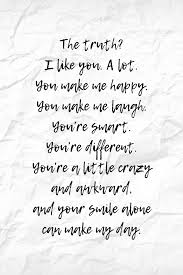 The truth?
I like you. A lot.
You make me happy.
You make me laugh.
You're smart.
You're different.
You're a little crazy
and awkward,
and your smile alone
can make my day.